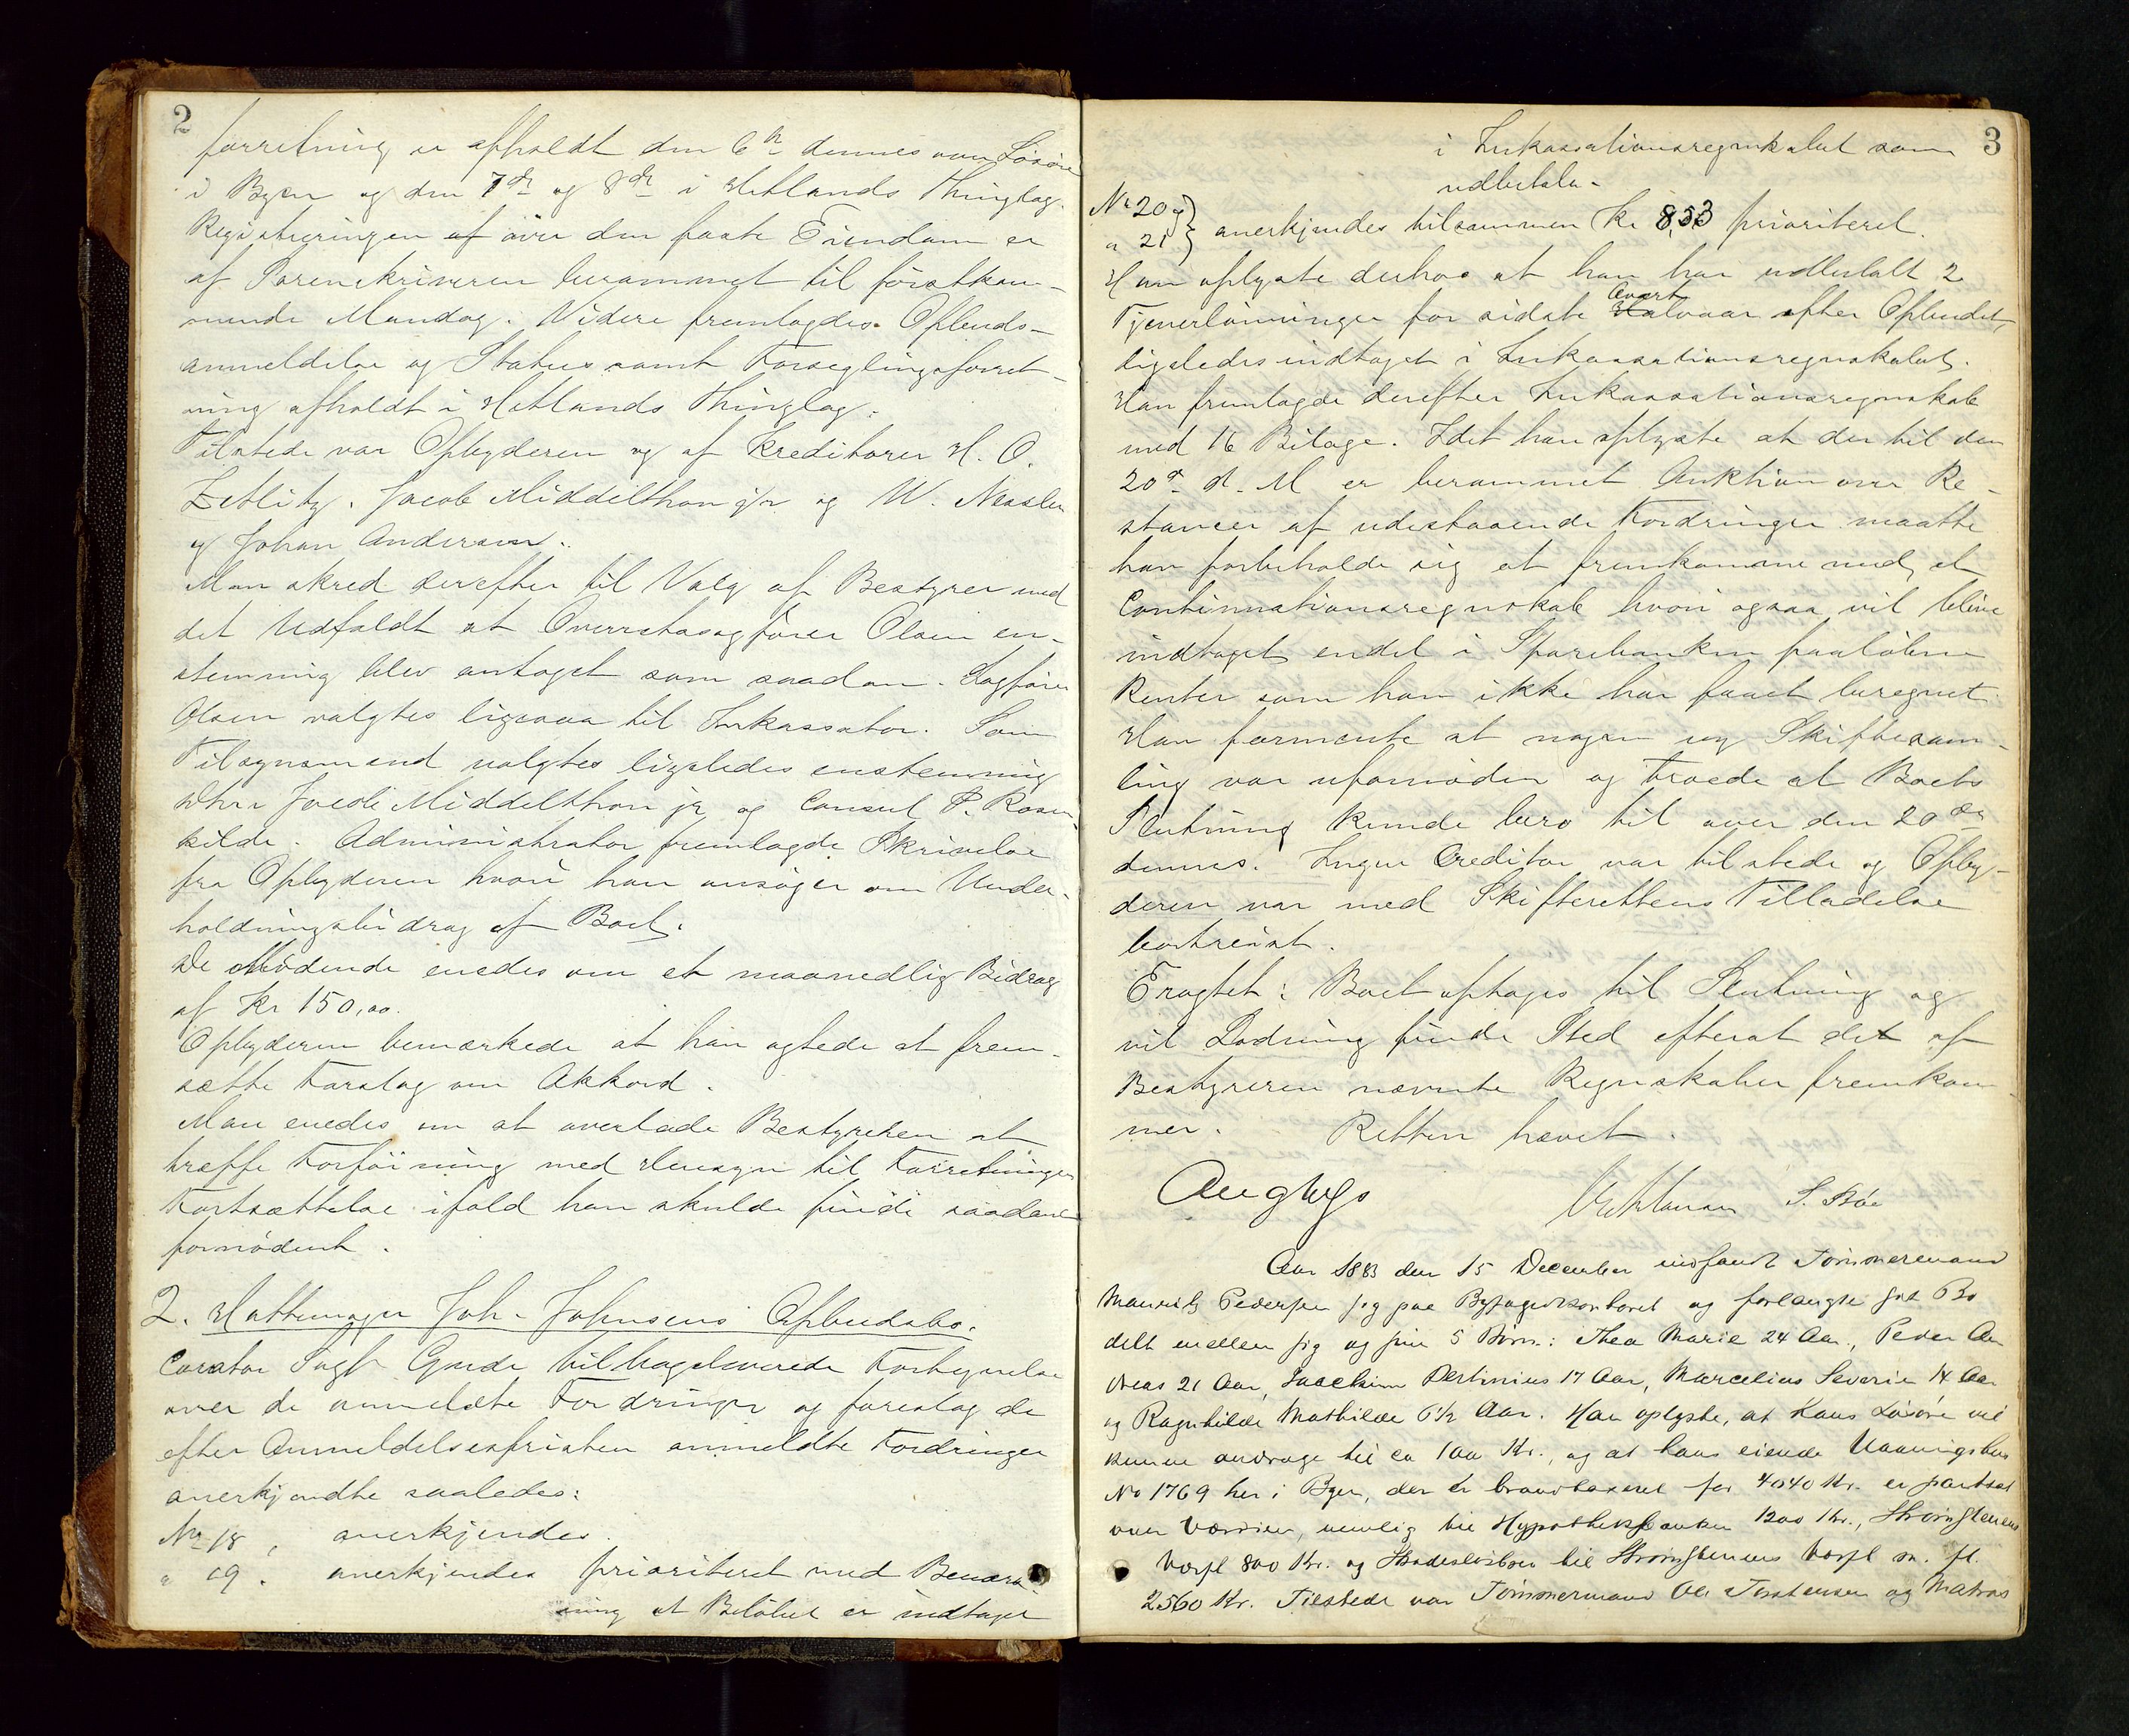 2
forretning er afholdt den 6te dennes over Løsøre
i Byen og den 7de og 8de i Hetlands Thinglag.
Registreringen af over den faste Eiendom er
af Sorenskriveren berammet til förstkom-
mende Mandag. Videre fremlagdes Opbuds-
anmeldelse og Status samt Forseglingsforret-
ning afholdt i Hetlands Thinglag.
Tilstede var Opbyderen og af Kreditorer H. O.
Zetlitz, Jacob Middelthon jr og W. Nessler
og Johan Andersen.
Man skred derefter til Valg af Bestyrer med
det Udfaldt at Overretssagfører Olsen en-
stemmig blev antaget som saadan. Sagfører
Olsen valgtes ligesaa til Inkassator. Som
Tilsynsmend valgtes ligeledes enstemmig
Dhrr Jacob Middelthon jr og Consul P. Rosen-
kilde. Administrator fremlagde Skrivelse
fra Opbyderen hvori han ansøger om Under-
holdningsbidrag af Boet.
De Mödende enedes om et maanedlig Bidrag
af Kr 150,00.
Opbyderen bemærkede at han agtede at frem-
sætte Forslag om Akkord.
Man enedes om at overlade Bestyrelsen at
træffe Forföining med Hensyn til Forretningens
Fortsættelse ifald han skulde finde saadant
fornödent.
2. Hattemager Joh. Johnsens Opbudsbo.
Curator Sagf. Gude tilbageleverede Fortegnelse
over de anmeldte Fordringer og foreslog de
efter Anmeldelsesfristen anmeldte Fordringer
anerkjendte saaledes:
No 18, anerkjendes.
" 19. anerkjendes prioriteret med Bemærk-
ning at Beløbet er indtaget
3
i Inkassationsregnskabet som
udbetalt.
No 20 og
" 21 } anerkjendes tilsammen Kr 8,53 prioriteret.
Han oplyste derhos at han har udbetalt 2
Tjenerlønninger for sidste Halvaar Qvart efter Opbudet,
ligeledes indtaget i Inkassationsregnskabet.
Han fremlagde derefter Inkassationsregnskab
med 16 Bilage. Idet han oplyste at der til den
20de d. M er berammet Auktion over Re-
stancer af udestaaende Fordringer maatte
han forbeholde sig at fremkomme med et
Continuationsregnskab hvori ogsaa vil blive
indtaget endel i Sparebanken paaløbne
Renter som han ikke har faaet beregnet.
Han formente at nogen ny Skiftesam-
ling var ufornöden og troede at Boets
Slutning kunde bero til over den 20de
dennes. Ingen Creditor var tilstede og Opby-
deren var med Skifterettens Tilladelse
bortreist.
Eragtet: Boet optages til Slutning og
vil Lodning finde Sted efterat det af
Bestyreren nævnte Regnskaber fremkom
mer. Retten hævet.
S. Bøe
Aar 1883 den 15 December indfandt Tømmermand
Maurits Pedersen sig paa Byfogedkontoret og forlangte sit Bo
delt mellem sig og sine 5 Børn: Thea Marie 24 Aar, Peder An
dreas 21 Aar, Joachim Martinius 17 Aar, Marcelius Severin 14 Aar
og Ragnhilde Mathilde 6½ Aar. Han oplyste, at Hans Løsøre vil
kunne andrage til ca 100 Kr., og at hans eiende Vaaningshus
No 1769 her i Byen, der er brandtaxeret for 4040 Kr. er pantsat
over Værdien, nemlig til Hypothekbanken 1200 Kr., Strømstenens
Værft 800 Kr. og Skadesløsbrev til Strømstenens Værft m. fl.
2560 Kr. Tilstede var Tømmermand Ole Torstensen og Matros